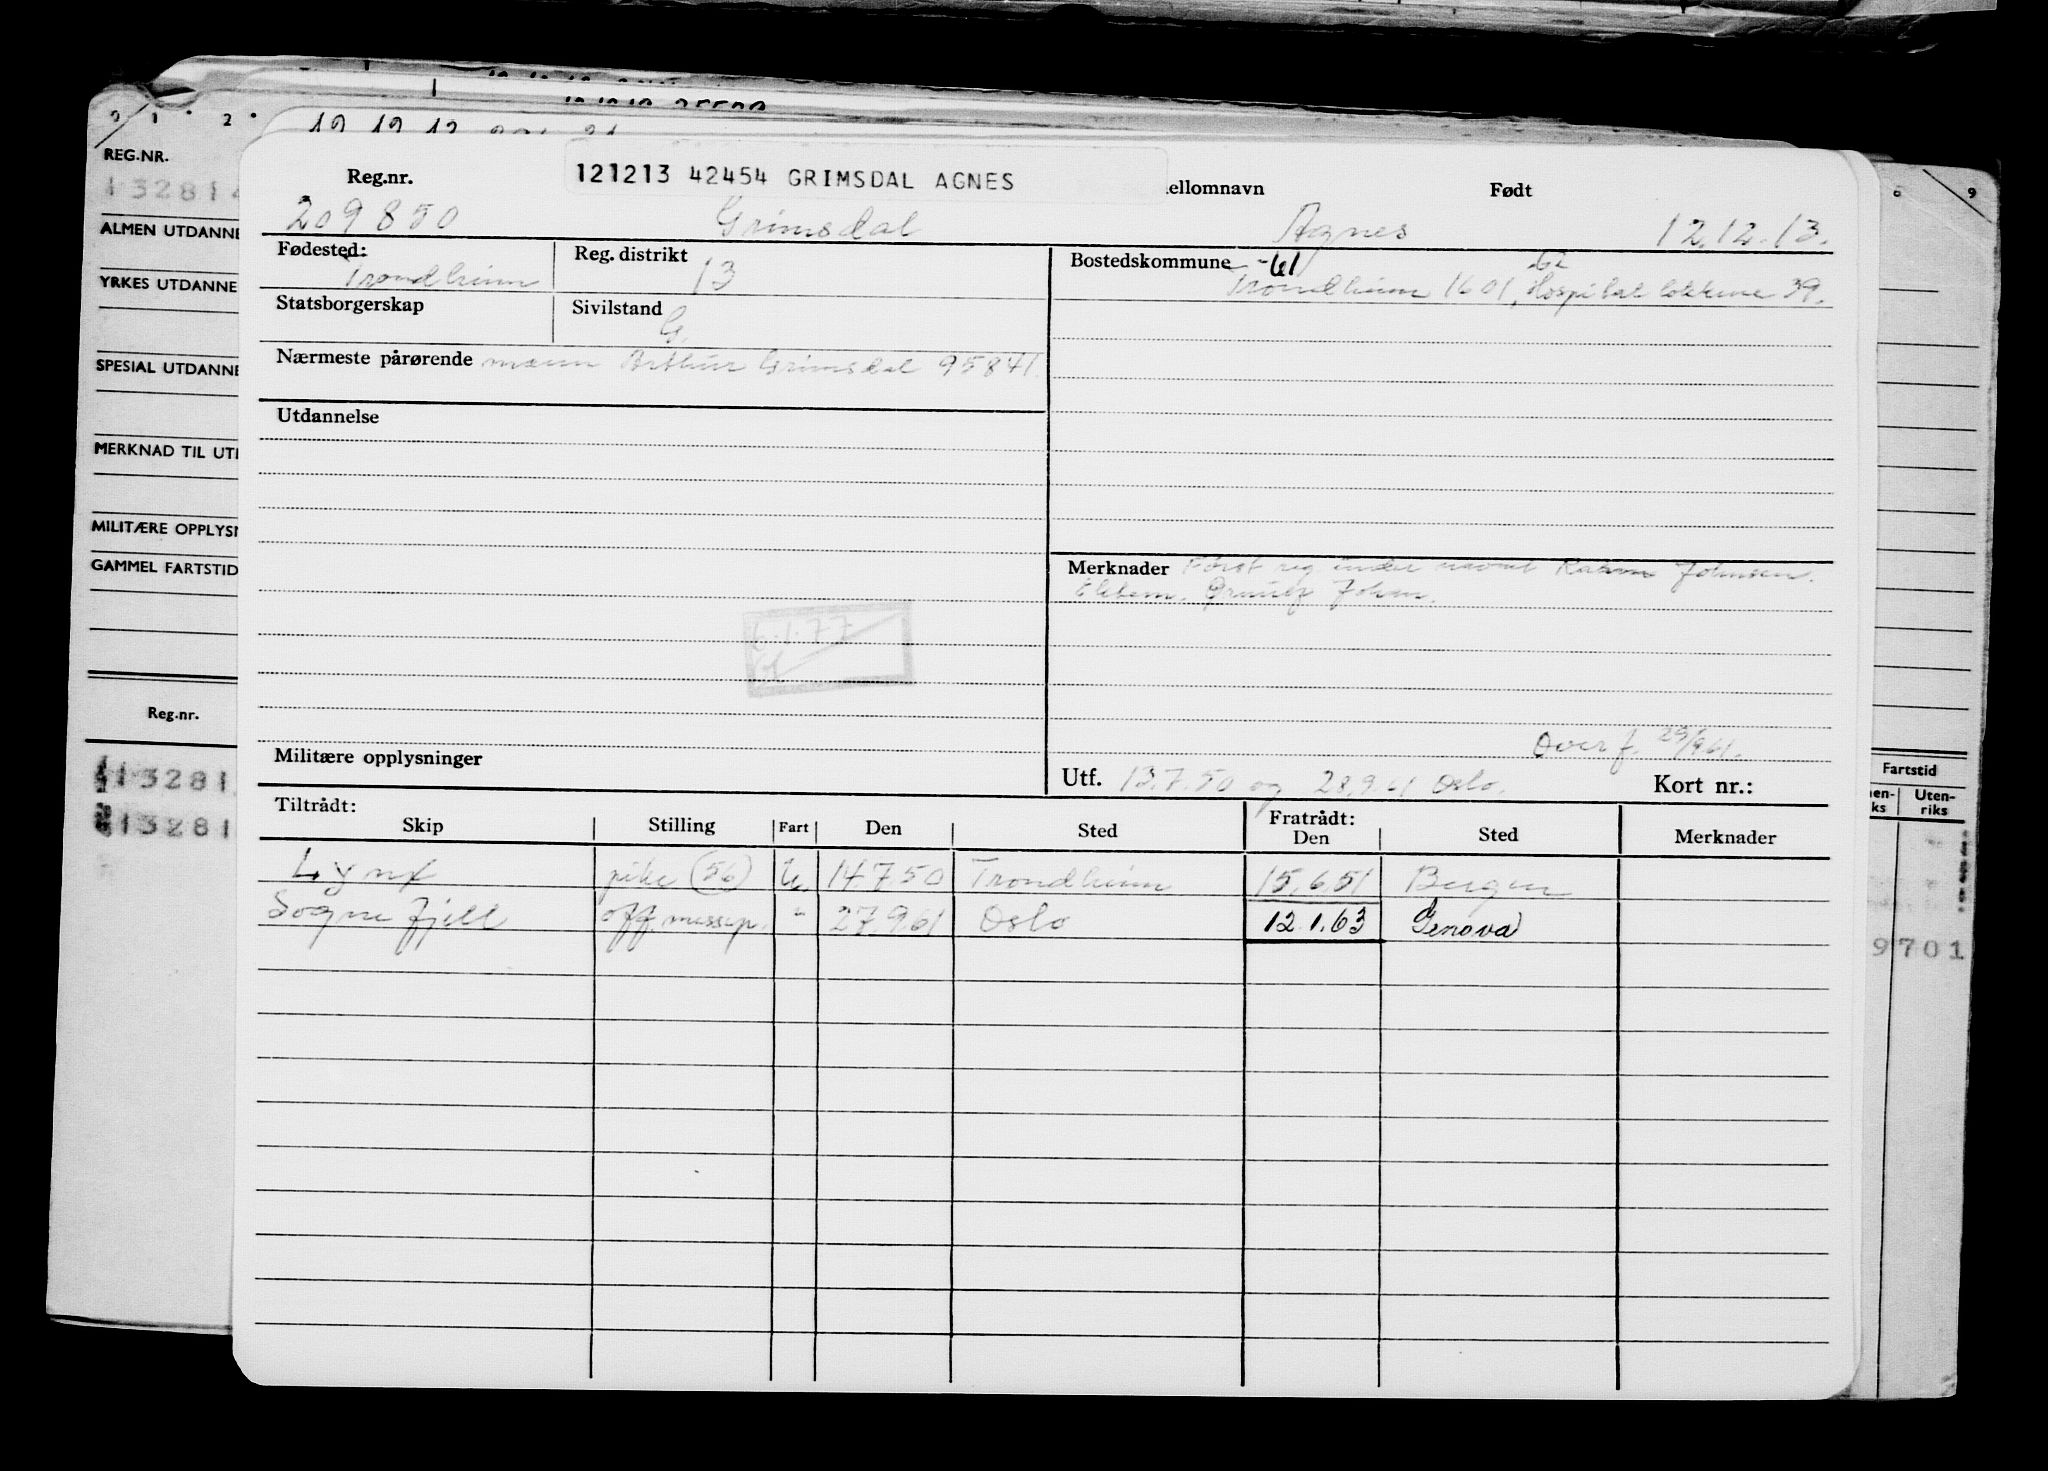 REG.NR.
ALMEN UTDANNE
YRKES UTDANNE
SPESIAL UTDANNE
MERKNAD TIL UTI
MILITÆRE OPPLYSN
GAMMEL FARTSTID
Reg.nr.
13281
13281
121213 42454 GRIMSDAL AGNES
Reg.nr. ellomnavn Født
209850 Grimsdal Agnes 12.12.13.
Fødested: Reg. distrikt Bostedskommune -61 -62
Trondheim 13 Trondheim 1601, Hospitalsløkkene 39.
Statsborgerskap Sivilstand
G.
Nærmeste pårørende mann Arthur Grimsdal 95841.
Utdannelse
Merknader Først reg under navnet Johnsen.
Johan.
6.1.77
Overf. 29/9 61.
Militære opplysninger
Utf. 13.7.50 og 28.9.61 Oslo. Kort nr.:
Tiltrådt: Fratrådt:
Skip Stilling Fart Den Sted Den Sted Merknader
Lynx pike (56) U. 14.7.50 Trondheim 15.6.51 Bergen
Sognefjell off.messep. " 27.9.61 Oslo 12.1.63 Genova
Fartstid
Uten-
riks
9701